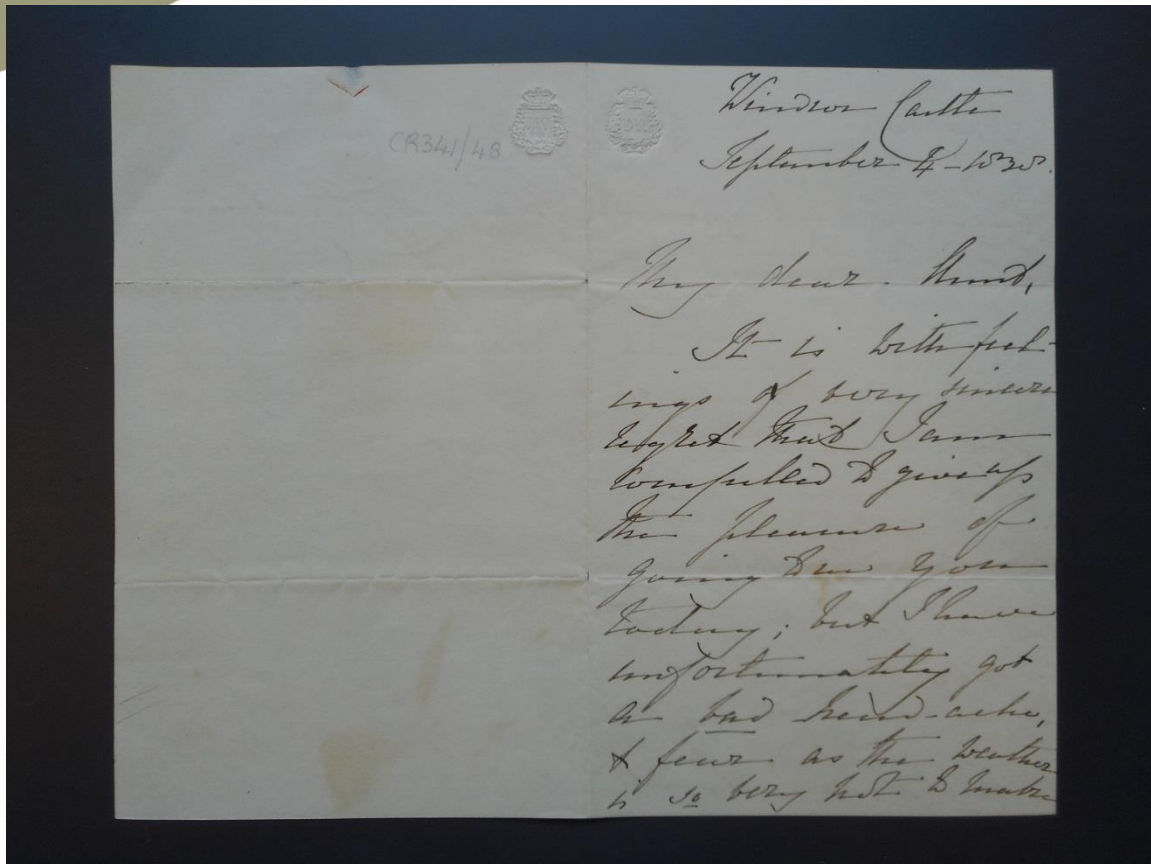 CR341/48
Windsor Castle
September 4 – 1838.
My dear Aunt,
It is with feel-
ings of very sincere
regret that I am
compelled to give up
the pleasure of
going to see you
today; but I have
unfortunately got
a bad head-ache,
& fear as the weather
is so very hot to make